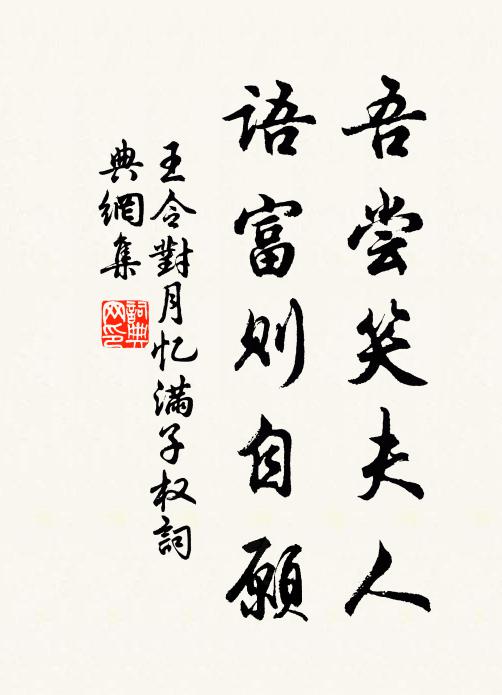 吾尝笑夫人
语富则自愿
王令對月忆滿子权詞
典網集
詞典
网印